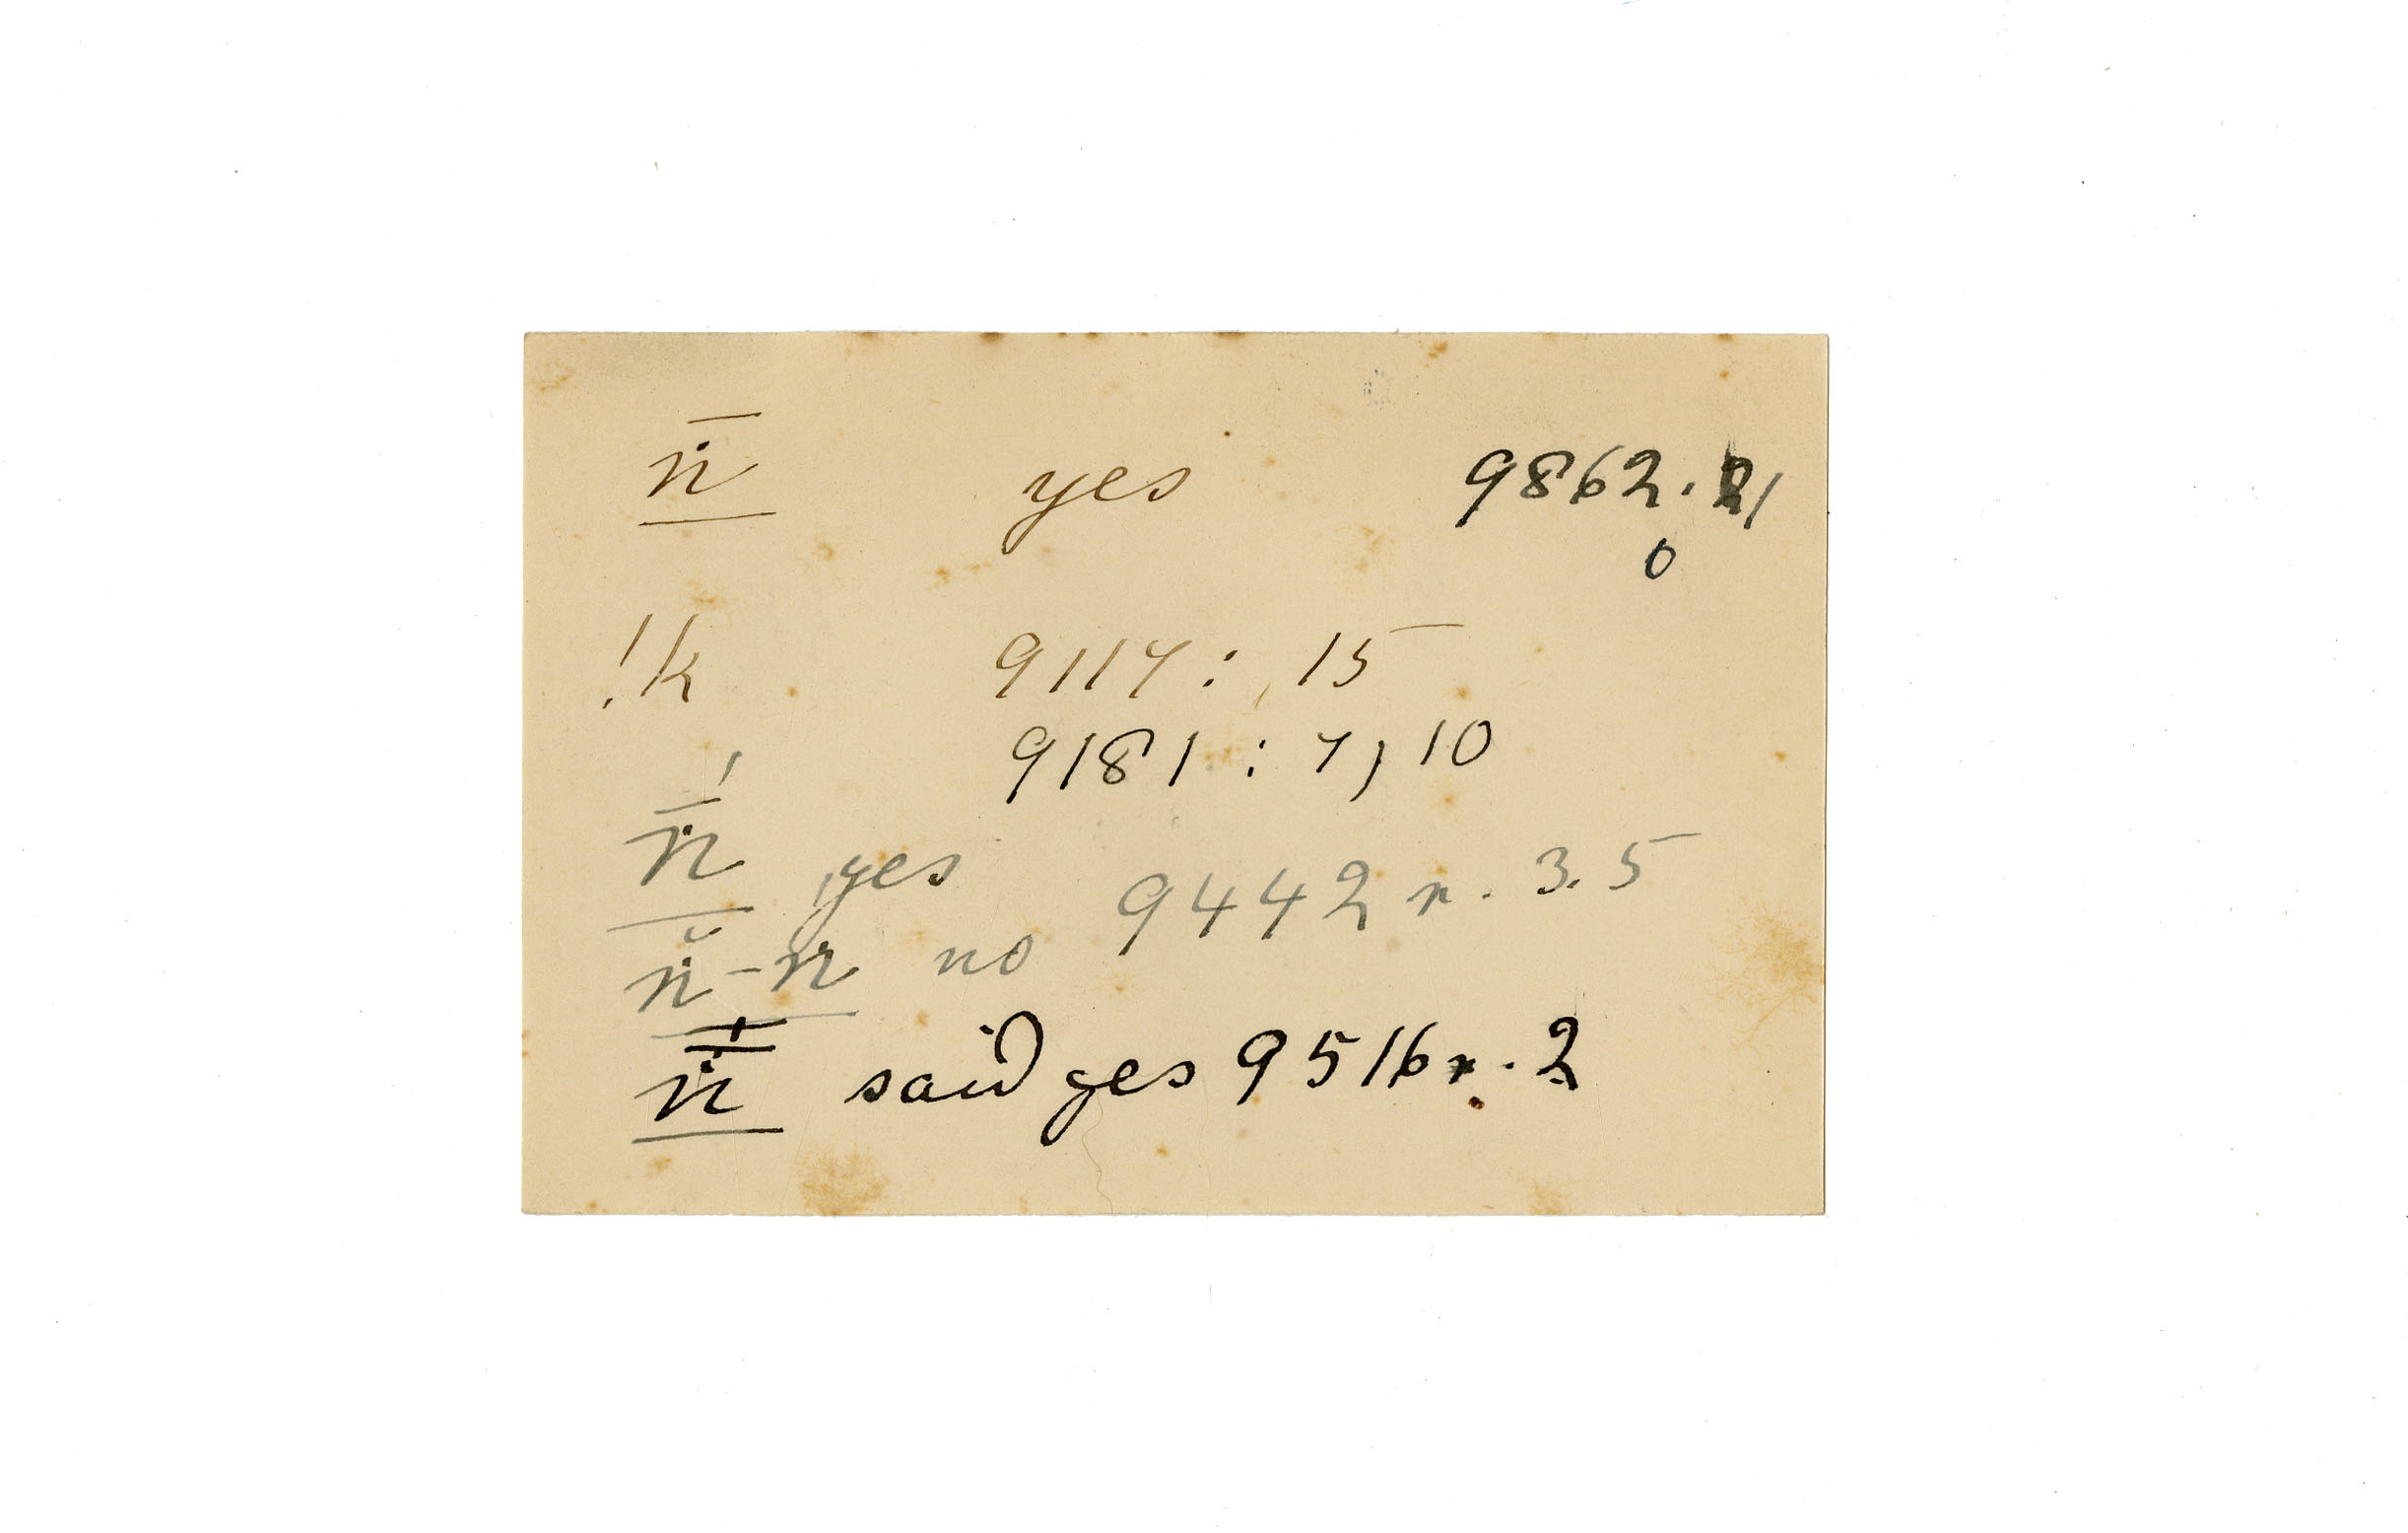 n̲̄̇ yes 9862. 21
0
!k 9117: 15
9181: 7, 10
n̲̄̇́ yes 9442 r. 3.5
n̲̆̇ - n̲ no
ṅ̲̄ said yes 9516 r. 2